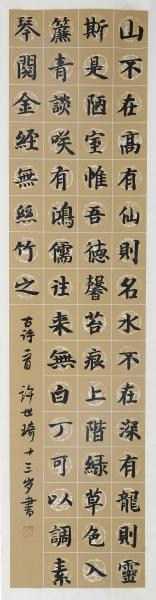 山不在高有仙則名水不在深有龍則靈
斯是陋室惟吾德馨苔痕上階緑草色入
簾青談咲有鴻儒往来無白丁可以調素
琴閱金經無絲竹之
古诗一首 许世琦十三岁書